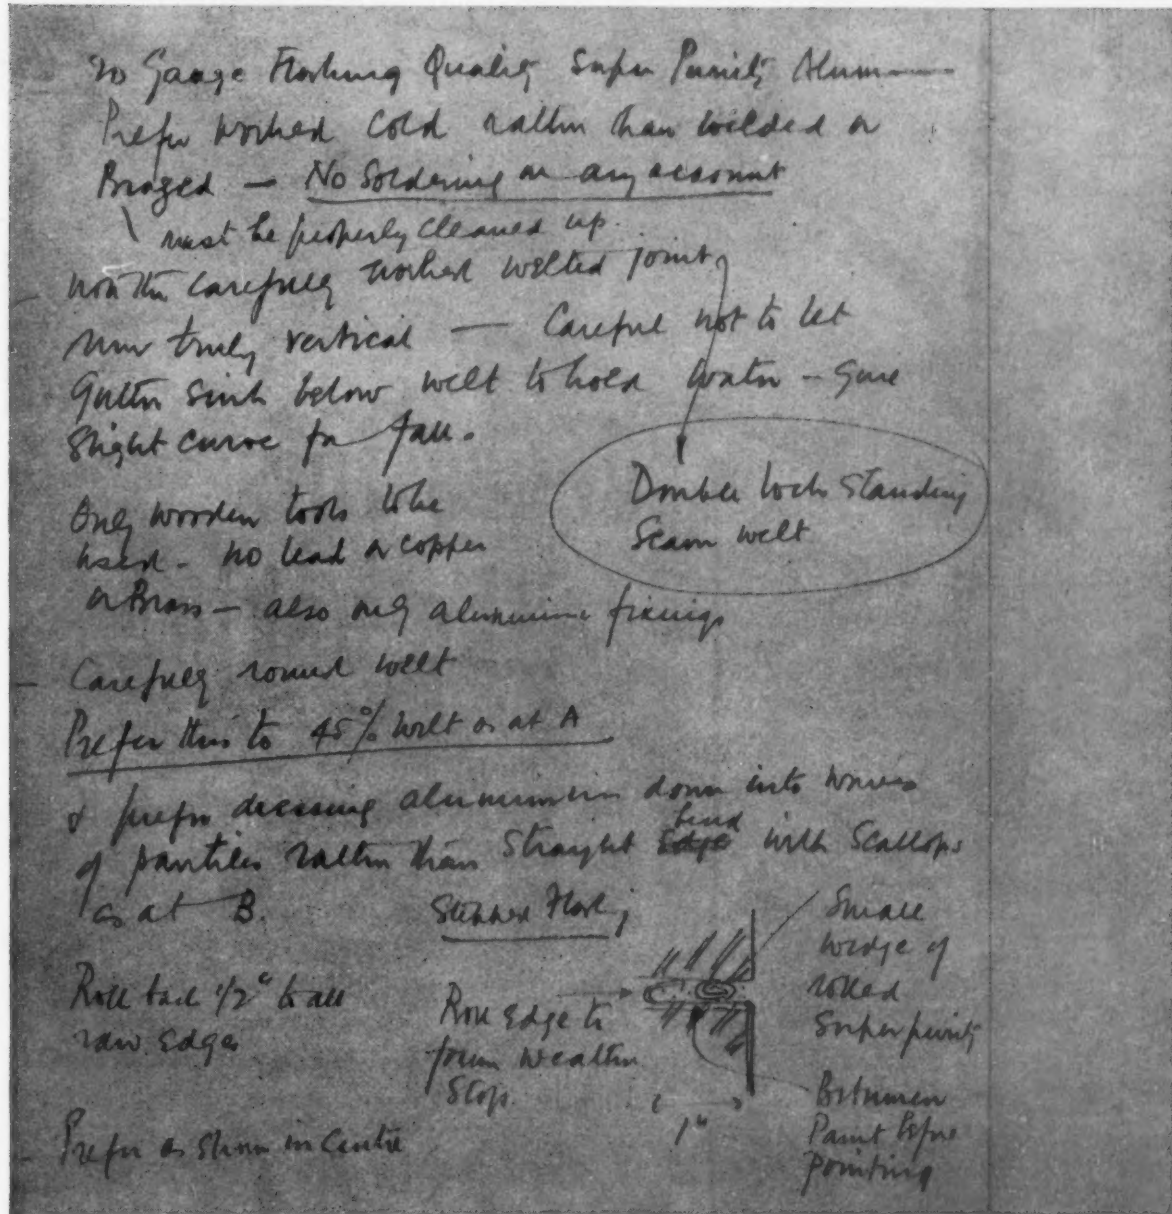 20 Gauge Flashing Quality Super Purity Alum
Prefer worked cold rather than welded or
Brazed — No Soldering on any account
must be properly cleaned up.
carefully worked welted joint
truly vertical — Careful not to let
Gutter sink below welt to hold water — Give
Slight curve for fall.
Double lock Standing
Seam welt
Only wooden tools to be
used - no lead or copper
or Brass — also only aluminium fixings
Carefully round welt
Prefer this to 45% welt as at A
& prefer dressing aluminium down into waves
of pantiles rather than straight Edge bend with Scallops
as at B.
Stepped Flashing
Small
wedge of
rolled
Superpurity
Roll back 1/2" to all
raw edges
Roll Edge to
form weather
Stop.
1"
Bitumen
Paint before
pointing
Prefer as shown in Centre